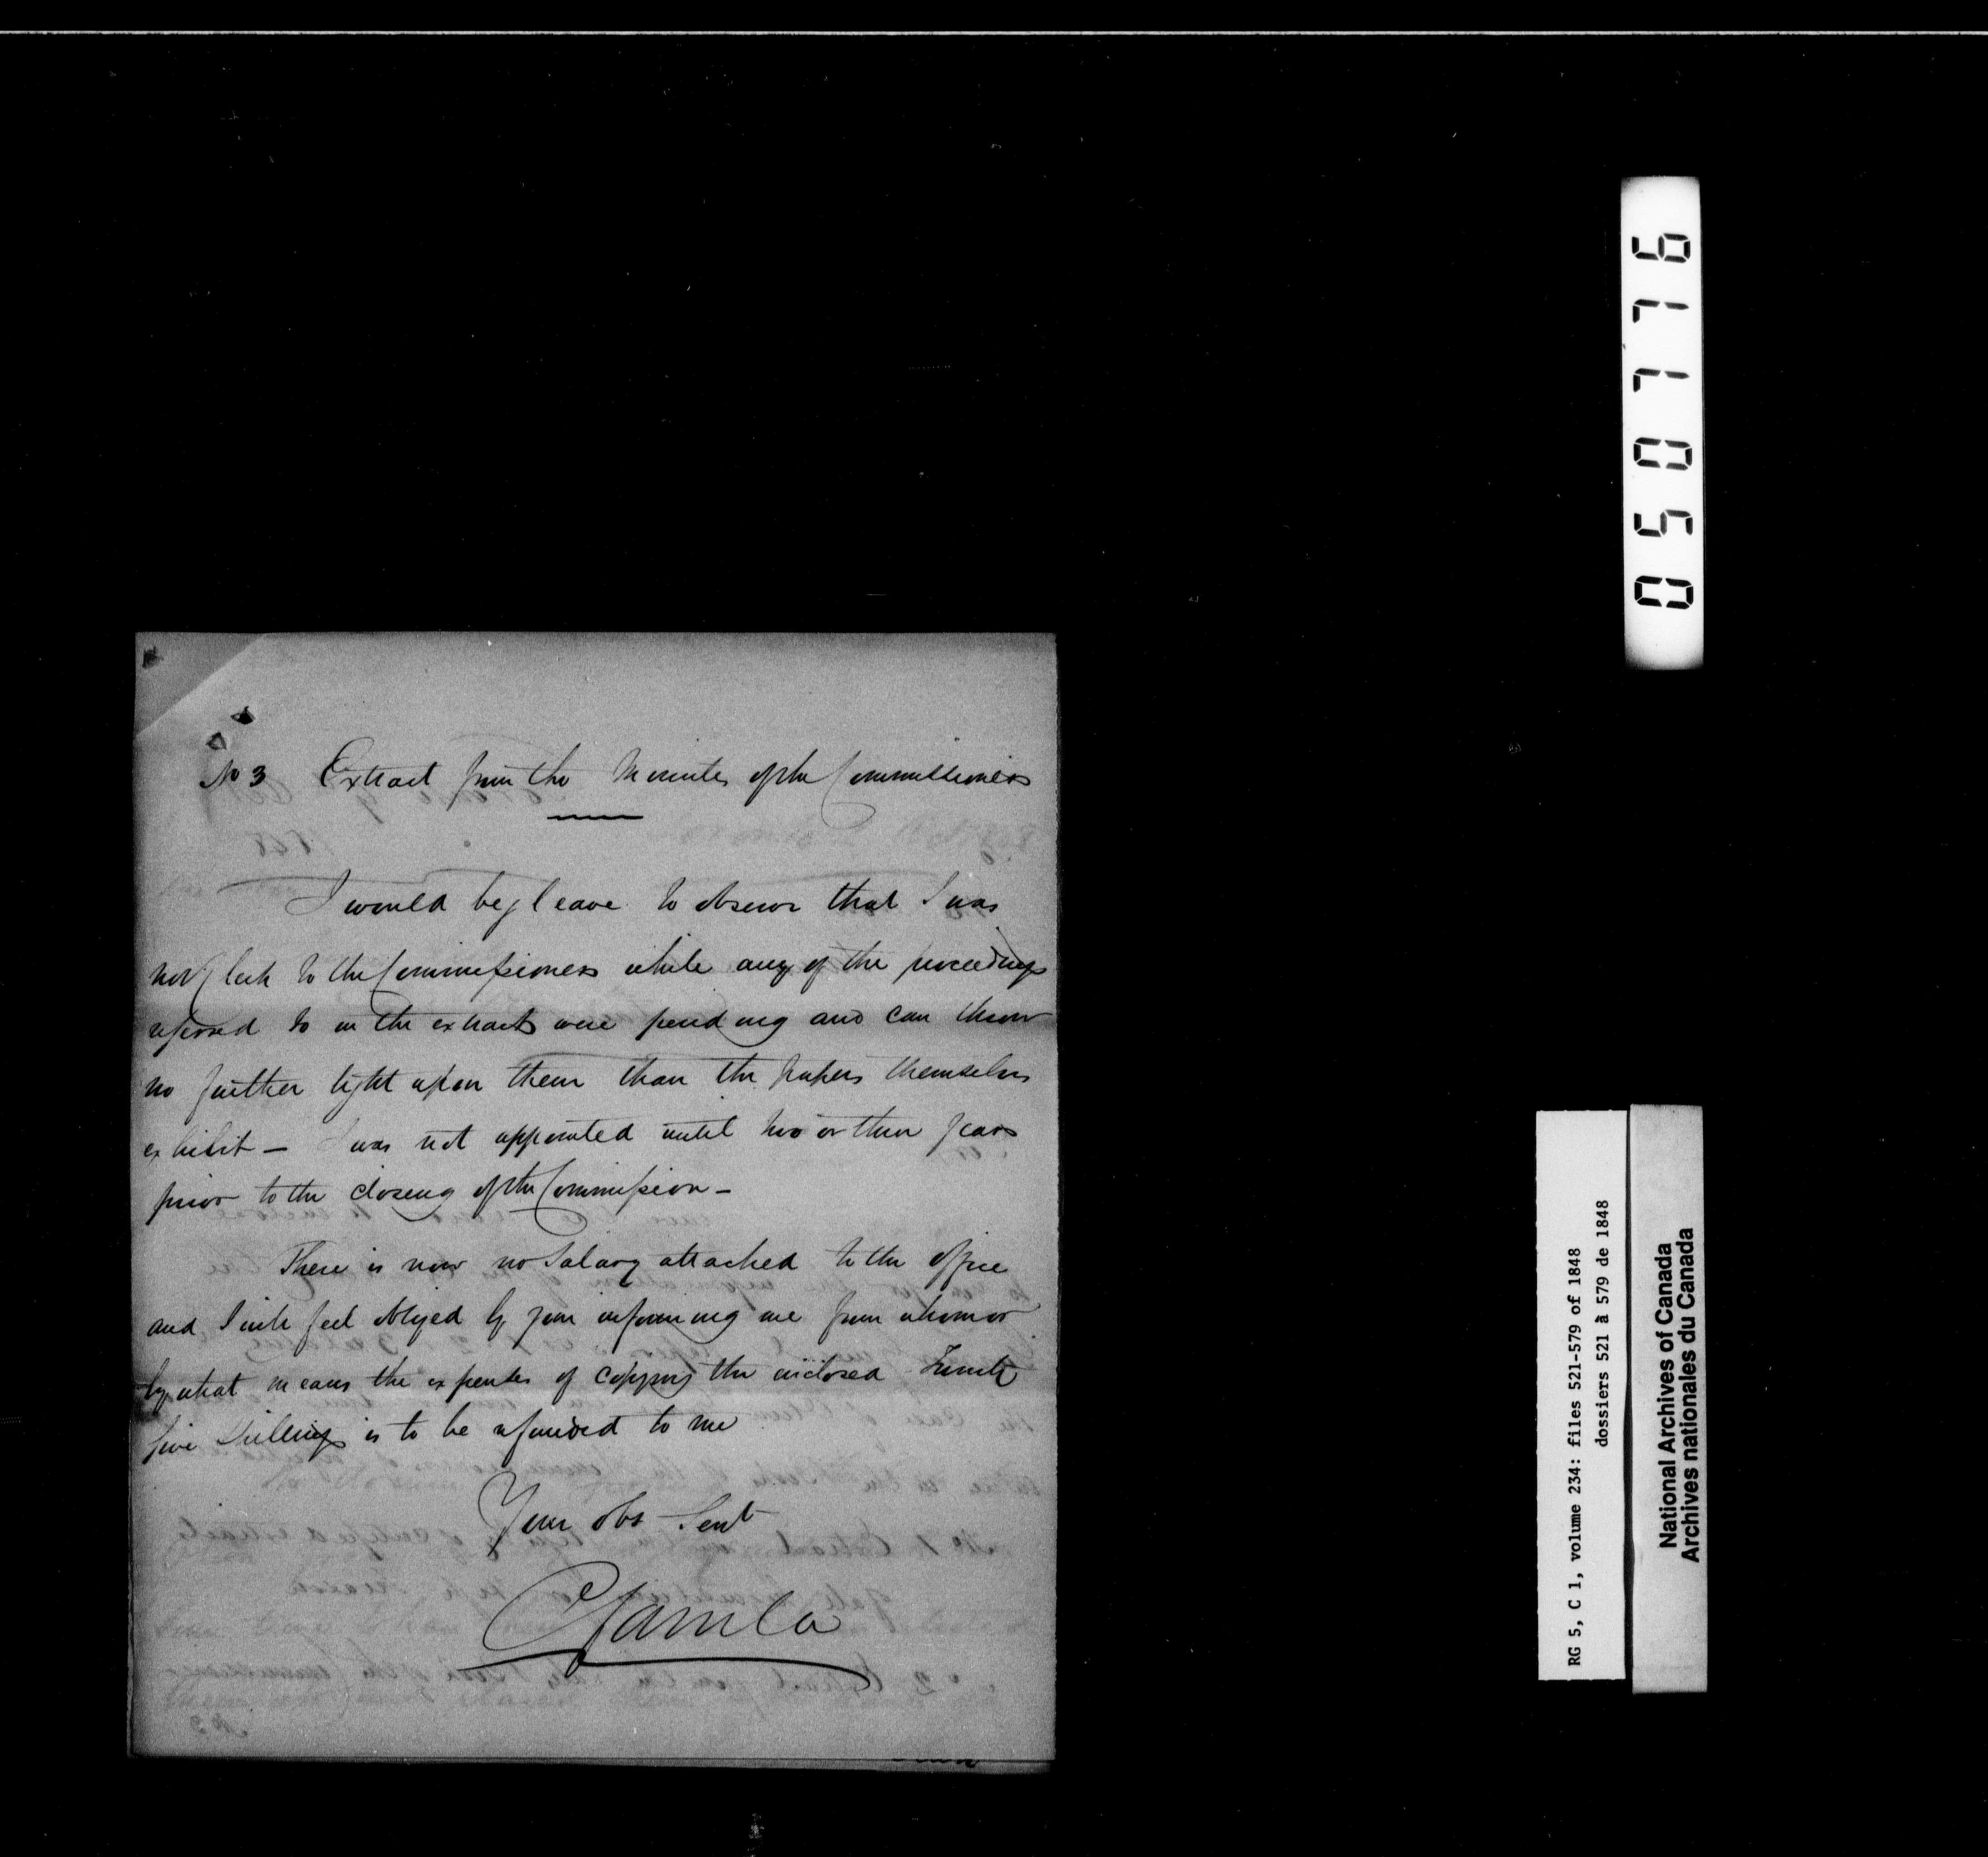 No 3 Extract from the Minutes of the Commissioners
I would beg leave to observe that I was
not Clerk to the Commissioners while any of the proceedings
referred to in the extracts were pending and can throw
no further light upon them than the papers themselves
exhibit – I was not appointed until two or three years
prior to the closing of the Commission –
There is now no Salary attached to the office
and I will feel obliged by your informing me from whom or
by what means the expenses of copying the enclosed Twenty
five Shillings is to be refunded to me
Your obt Servt
050776
RG 5, C 1, volume 234: files 521-579 of 1848
dossiers 521 à 579 de 1848
National Archives of Canada
Archives nationales du Canada